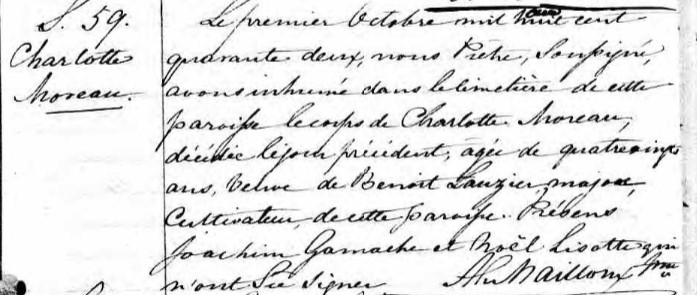 S. 59.
Charlotte
Moreau.
Le premier Octobre mil huit cent
quarante deux, nous Prêtre, Soussigné,
avons inhumé dans le Cimetière de cette
paroisse le corps de Charlotte Moreau,
décédée le jour précédent, agée de quatrevingts
ans, Veuve de Benoit Lauzier, major,
Cultivateur, de cette paroisse. Présens
Joachim Gamache et Noël Lisotte qui
n'ont Sû signer Alx Mailloux